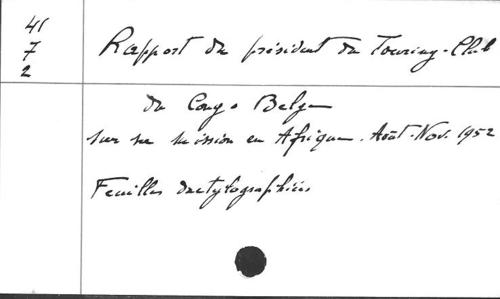 41
7
2
Rapport du président du Touring-Club
du Congo Belge
sur sa mission en Afrique. Août-Nov. 1952
Feuilles dactylographiées